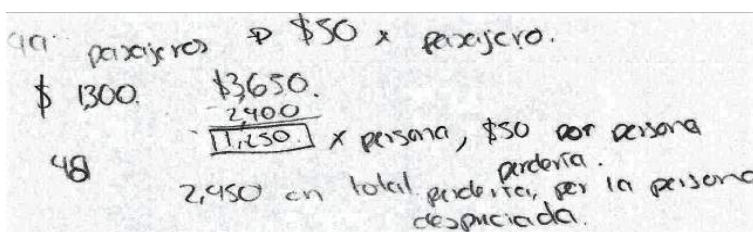 49 pasajeros → $50 x pasajero.
$ 1300. $3,650.
2,400
1,250. x persona, $50 por persona
48 perdería.
2,450 en total perdería, por la persona
despreciada.